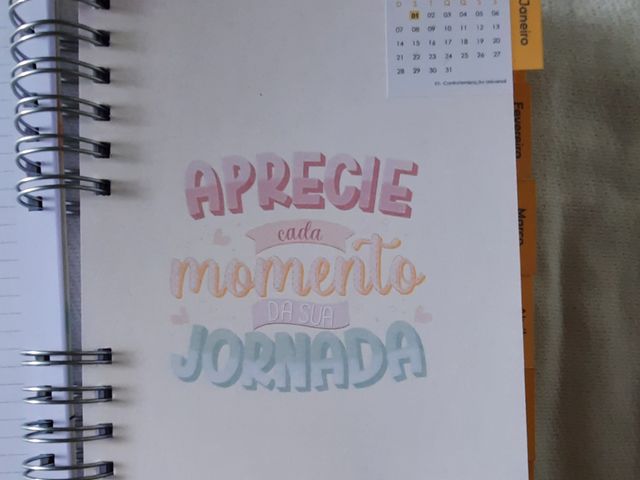 D S T Q Q S S
01 02 03 04 05 06
07 08 09 10 11 12 13
14 15 16 17 18 19 20
21 22 23 24 25 26 27
28 29 30 31
01- Confraternização Universal
Janeiro
Fevereiro
Março
APRECIE
cada
momento
DA SUA
JORNADA